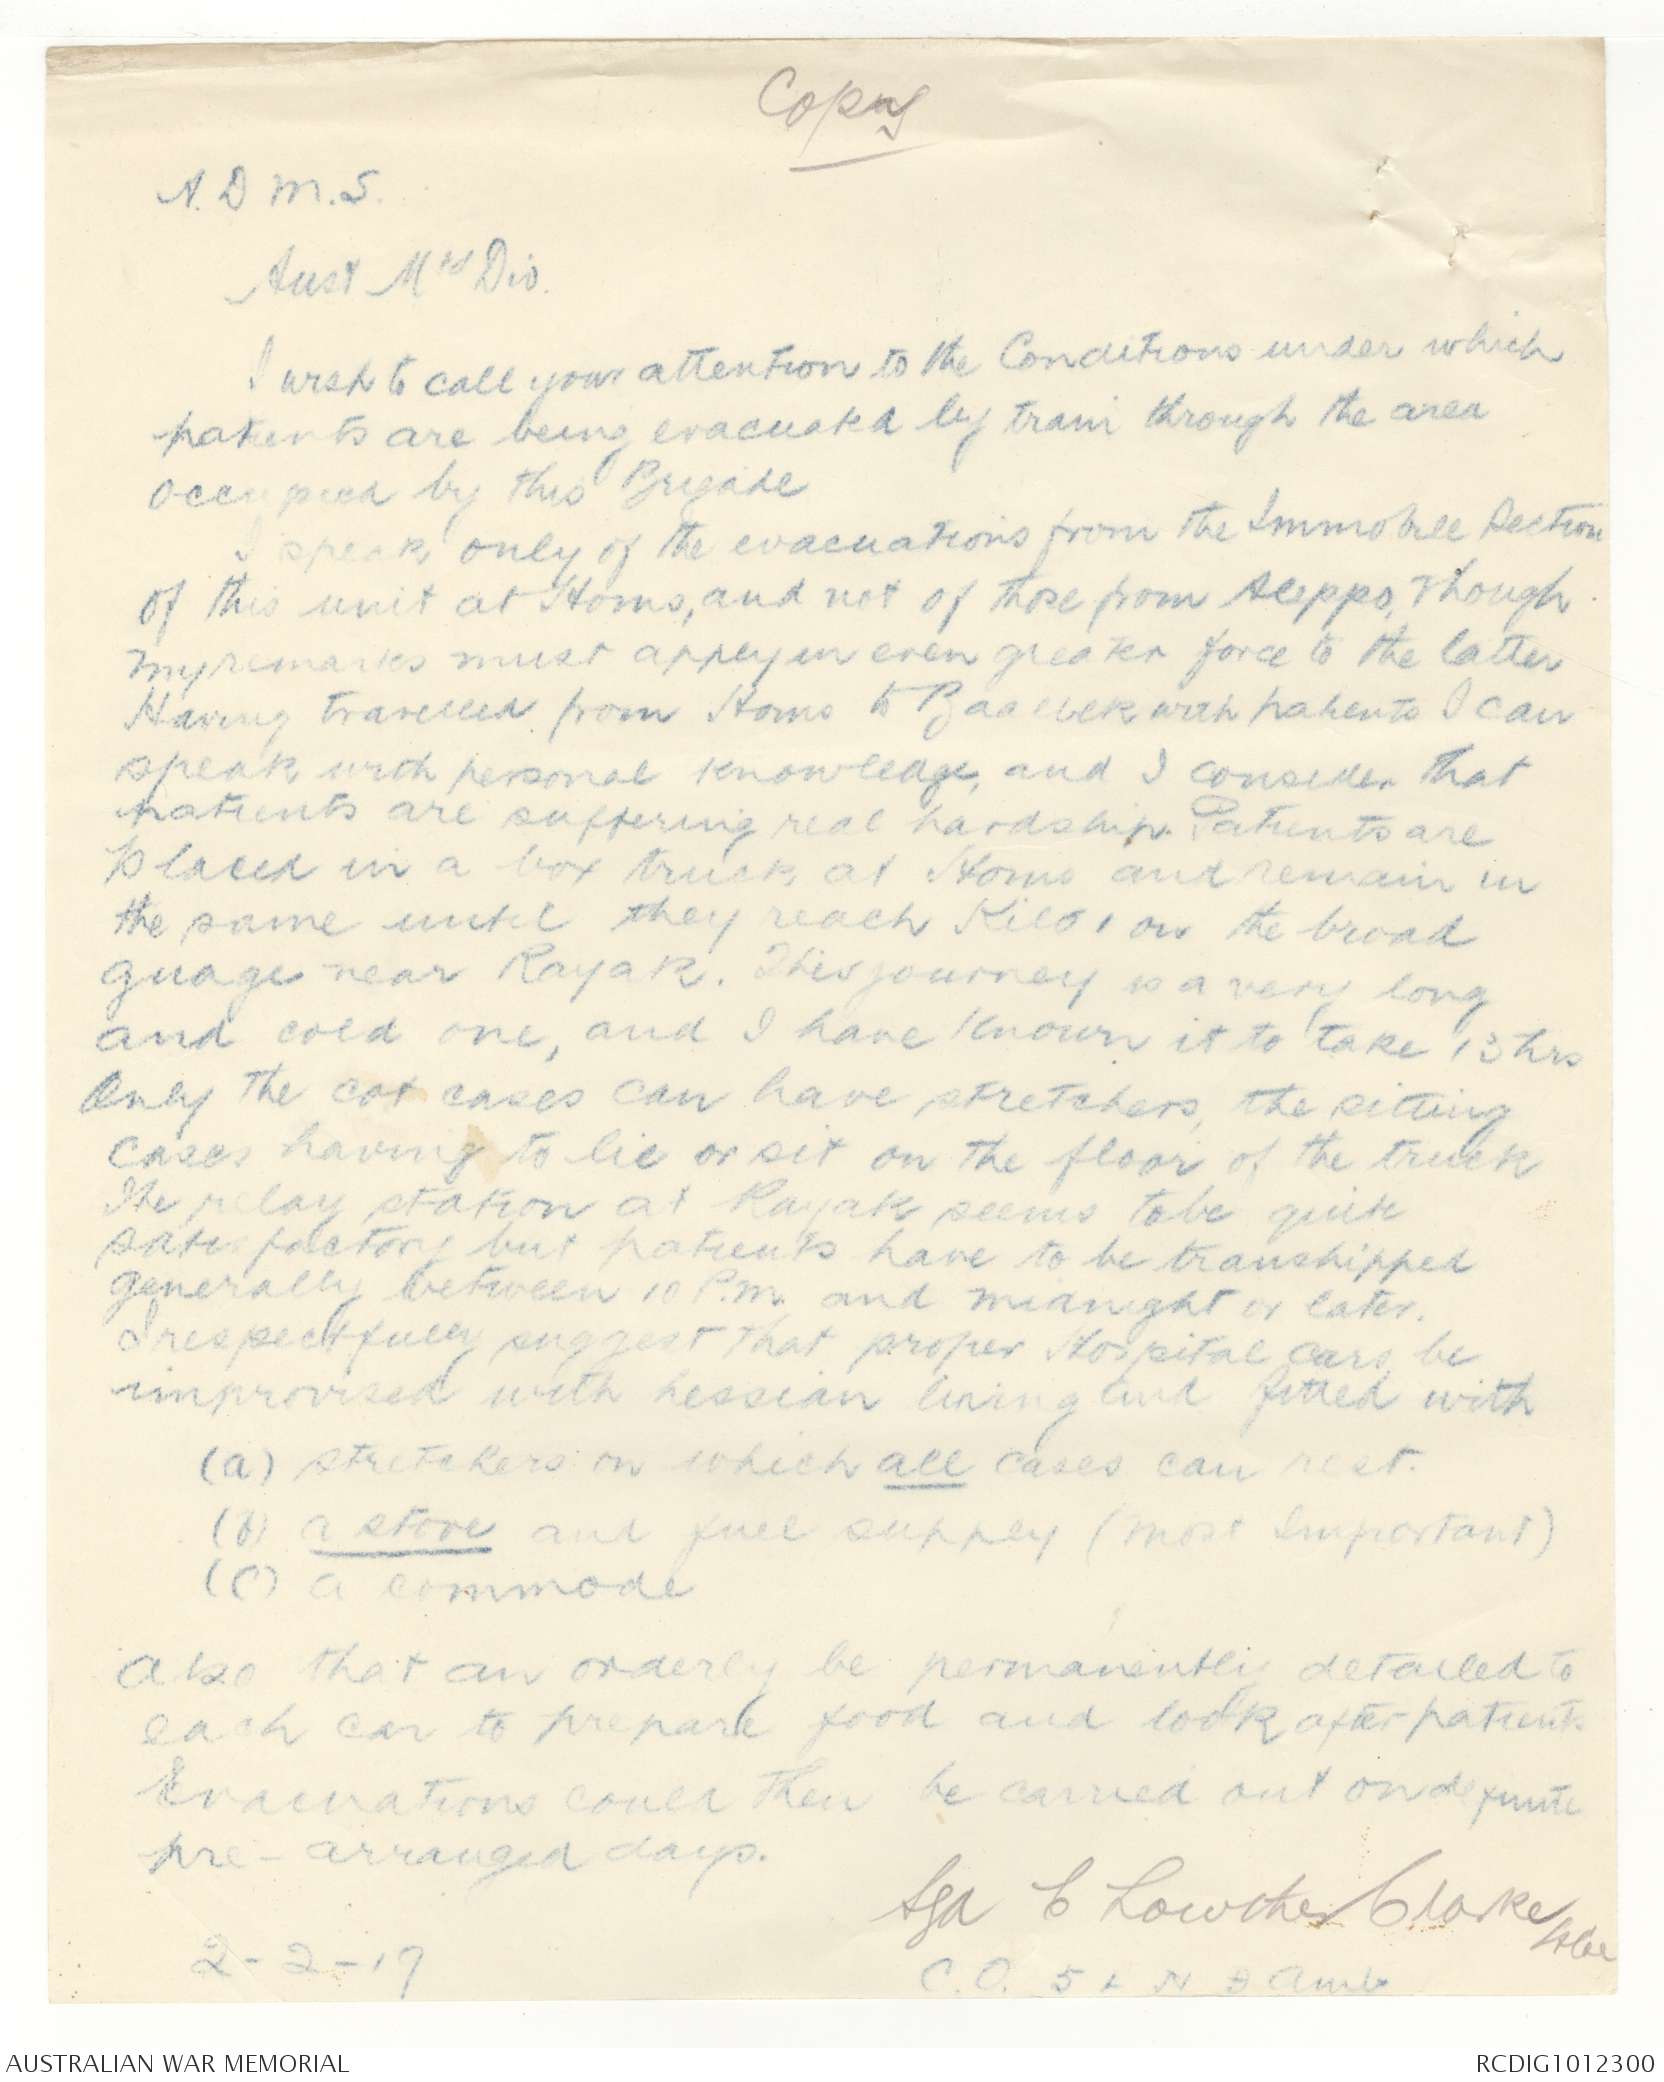 Copy
A.D.M.S.
Aust Mtd Div.
I wish to call your attention to the Conditions under which
patients are being evacuated by train through the area
occupied by this Brigade
I speak only of the evacuations from the Immobile Section
of this unit at Homs, and not of those from Aleppo, Though
my remarks must apply in even greater force to the latter
Having travelled from Homs to Baalbek with patients I can
speak with personal knowledge, and I consider that
patients are suffering real hardship. Patients are
placed in a box truck at Homs and remain in
the same until they reach Kilo 1 on the broad
guage near Rayak. This journey is a very long
and cold one, and I have known it to take 13 hrs
Only the cot cases can have stretchers, the sitting
cases having to lie or sit on the floor of the truck
The relay station at Rayak seems to be quite
satisfactory but patients have to be transhipped
generally between 10 P.m. and midnight or later.
I respectfully suggest that proper Hospital cars be
improvised with hessian lining and fitted with
(a) stretchers on which all cases can rest.
(b) a stove and fuel supply (most Important)
(c) a commode
Also that an orderly be permanently detailed to
each car to prepare food and look after patients
Evacuations could then be carried out on definite
pre-arranged days.
Sgd C Lowther Clarke
2-2-19
C.O. 5 L H F Amb
AUSTRALIAN WAR MEMORIAL
RCDIG1012300